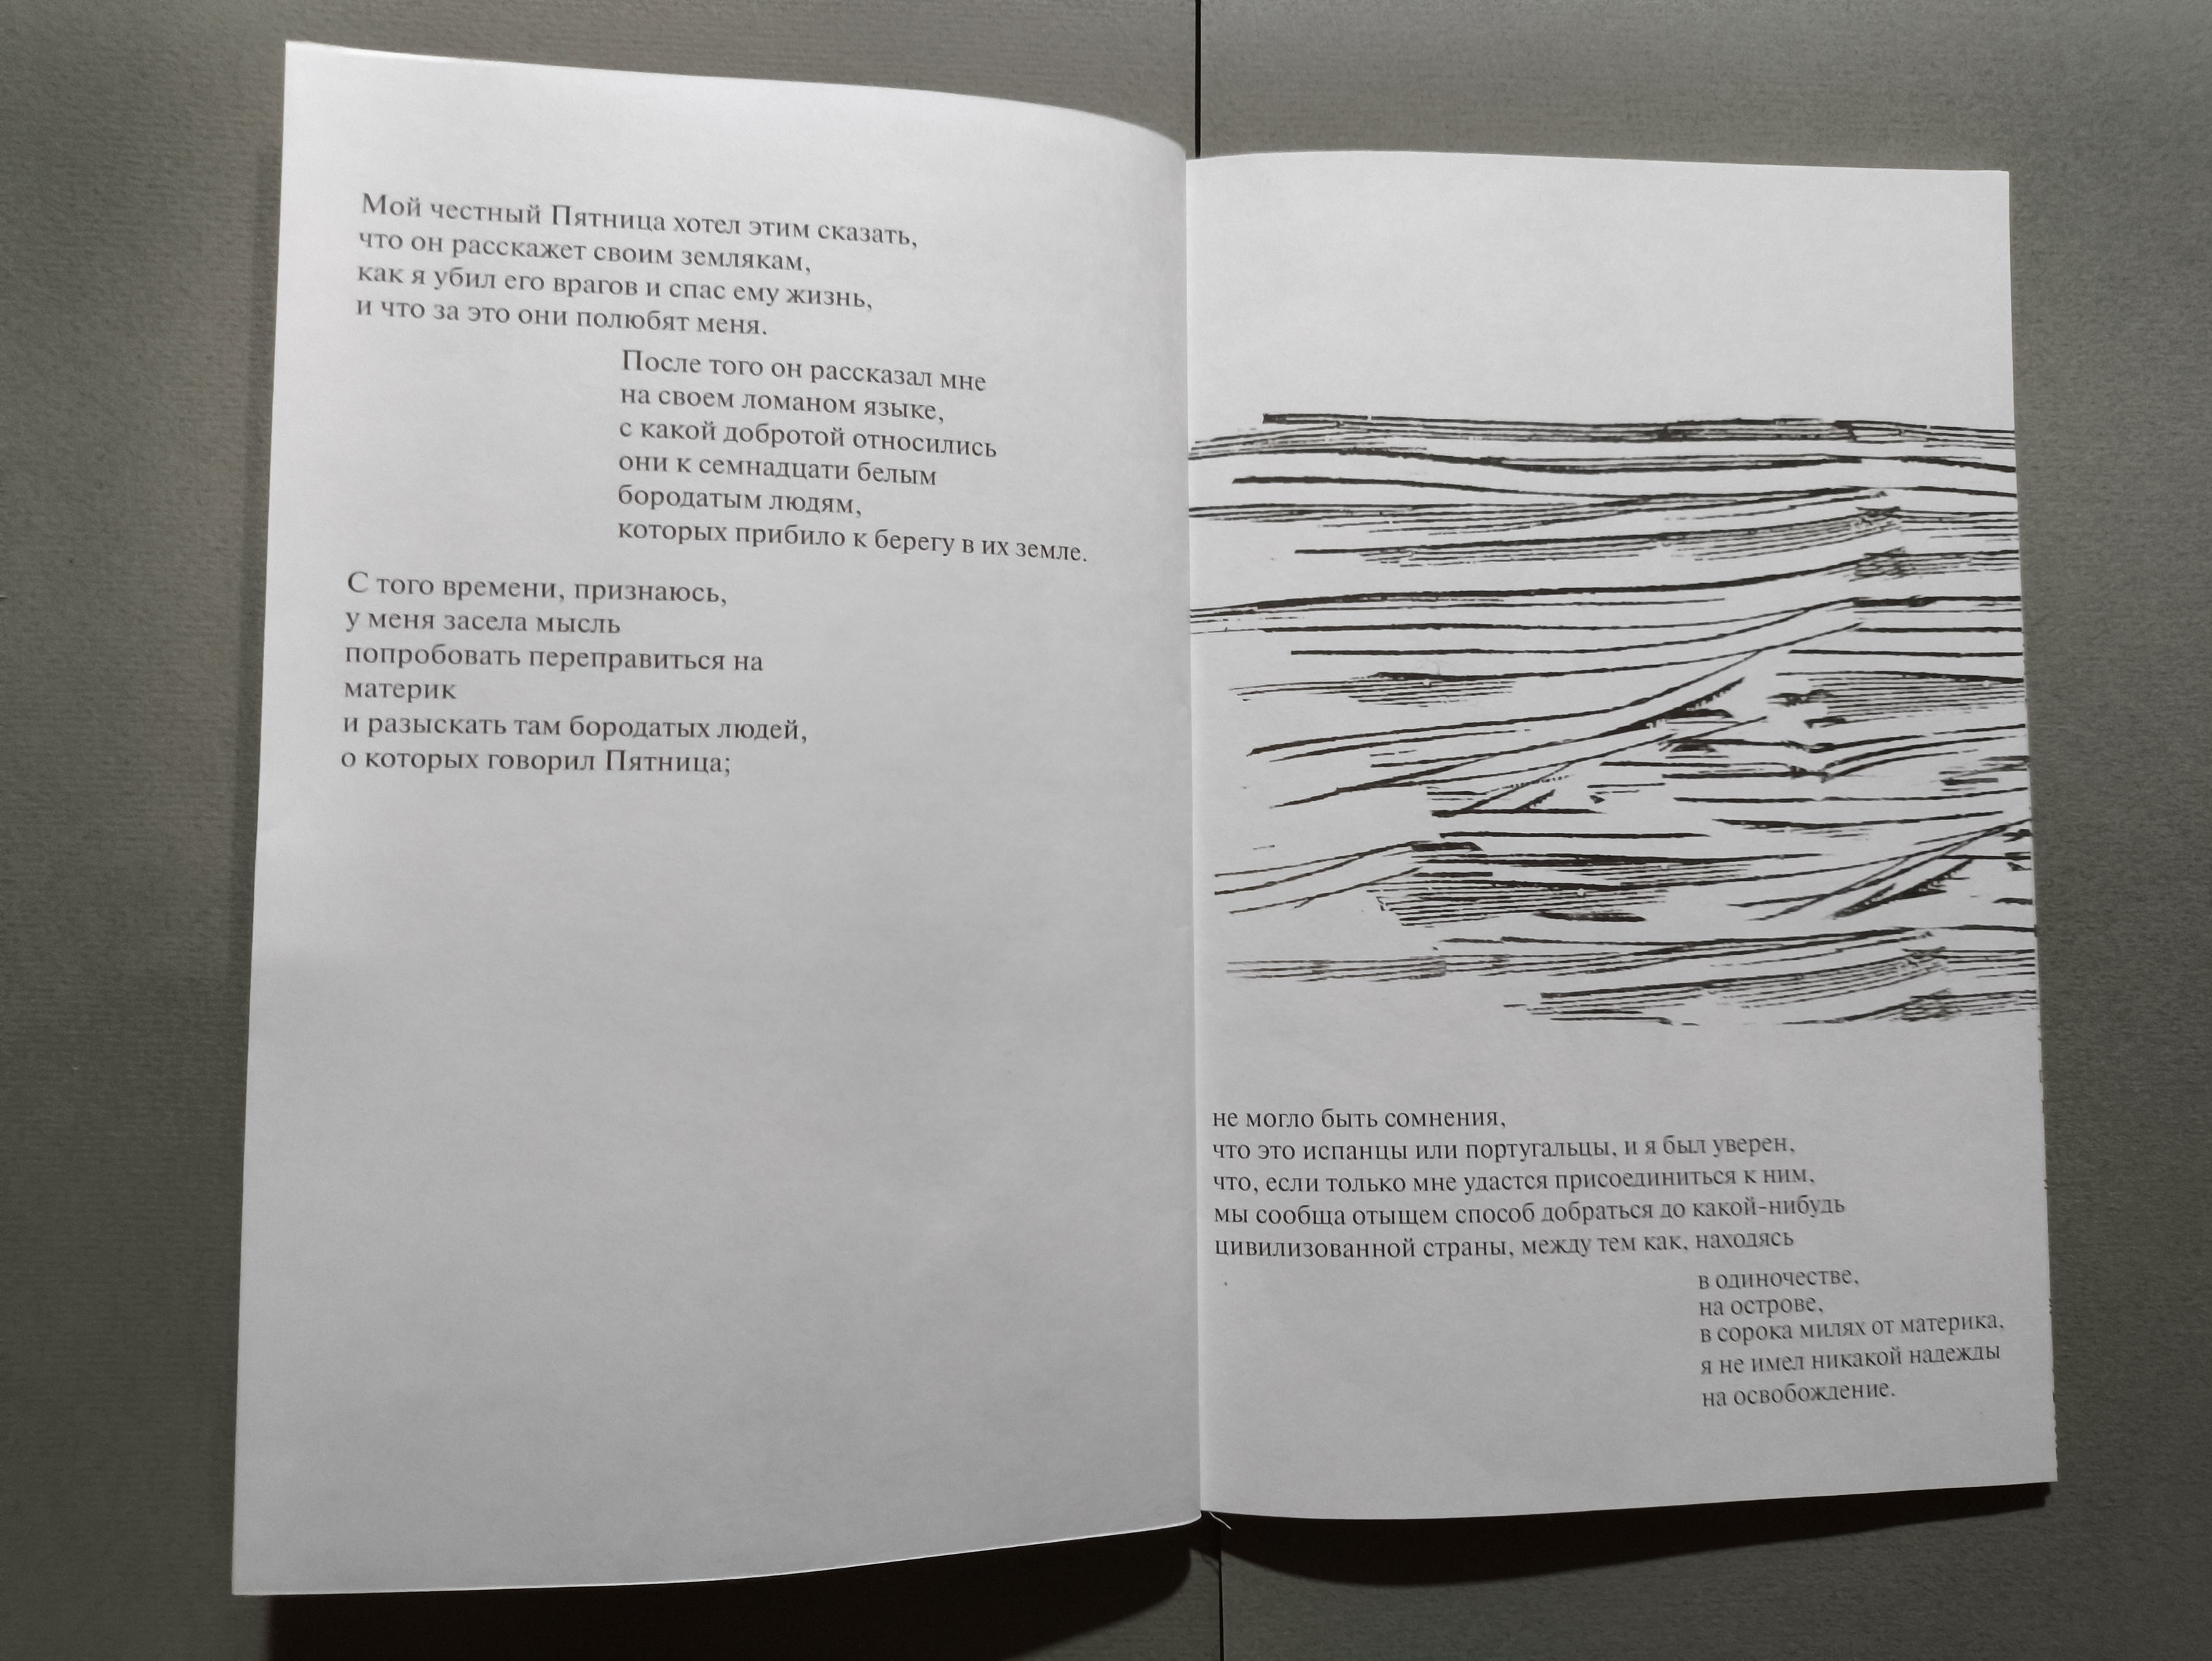 Мой честный Пятница хотел этим сказать,
что он расскажет своим землякам,
как я убил его врагов и спас ему жизнь,
и что за это они полюбят меня.
После того он рассказал мне
на своем ломаном языке,
с какой добротой относились
они к семнадцати белым
бородатым людям,
которых прибило к берегу в их земле.
С того времени, признаюсь,
у меня засела мысль
попробовать переправиться на
материк
и разыскать там бородатых людей,
о которых говорил Пятница;
не могло быть сомнения,
что это испанцы или португальцы, и я был уверен,
что, если только мне удастся присоединиться к ним,
мы сообща отыщем способ добраться до какой-нибудь
цивилизованной страны, между тем как, находясь
в одиночестве,
на острове,
в сорока милях от материка,
я не имел никакой надежды
на освобождение.